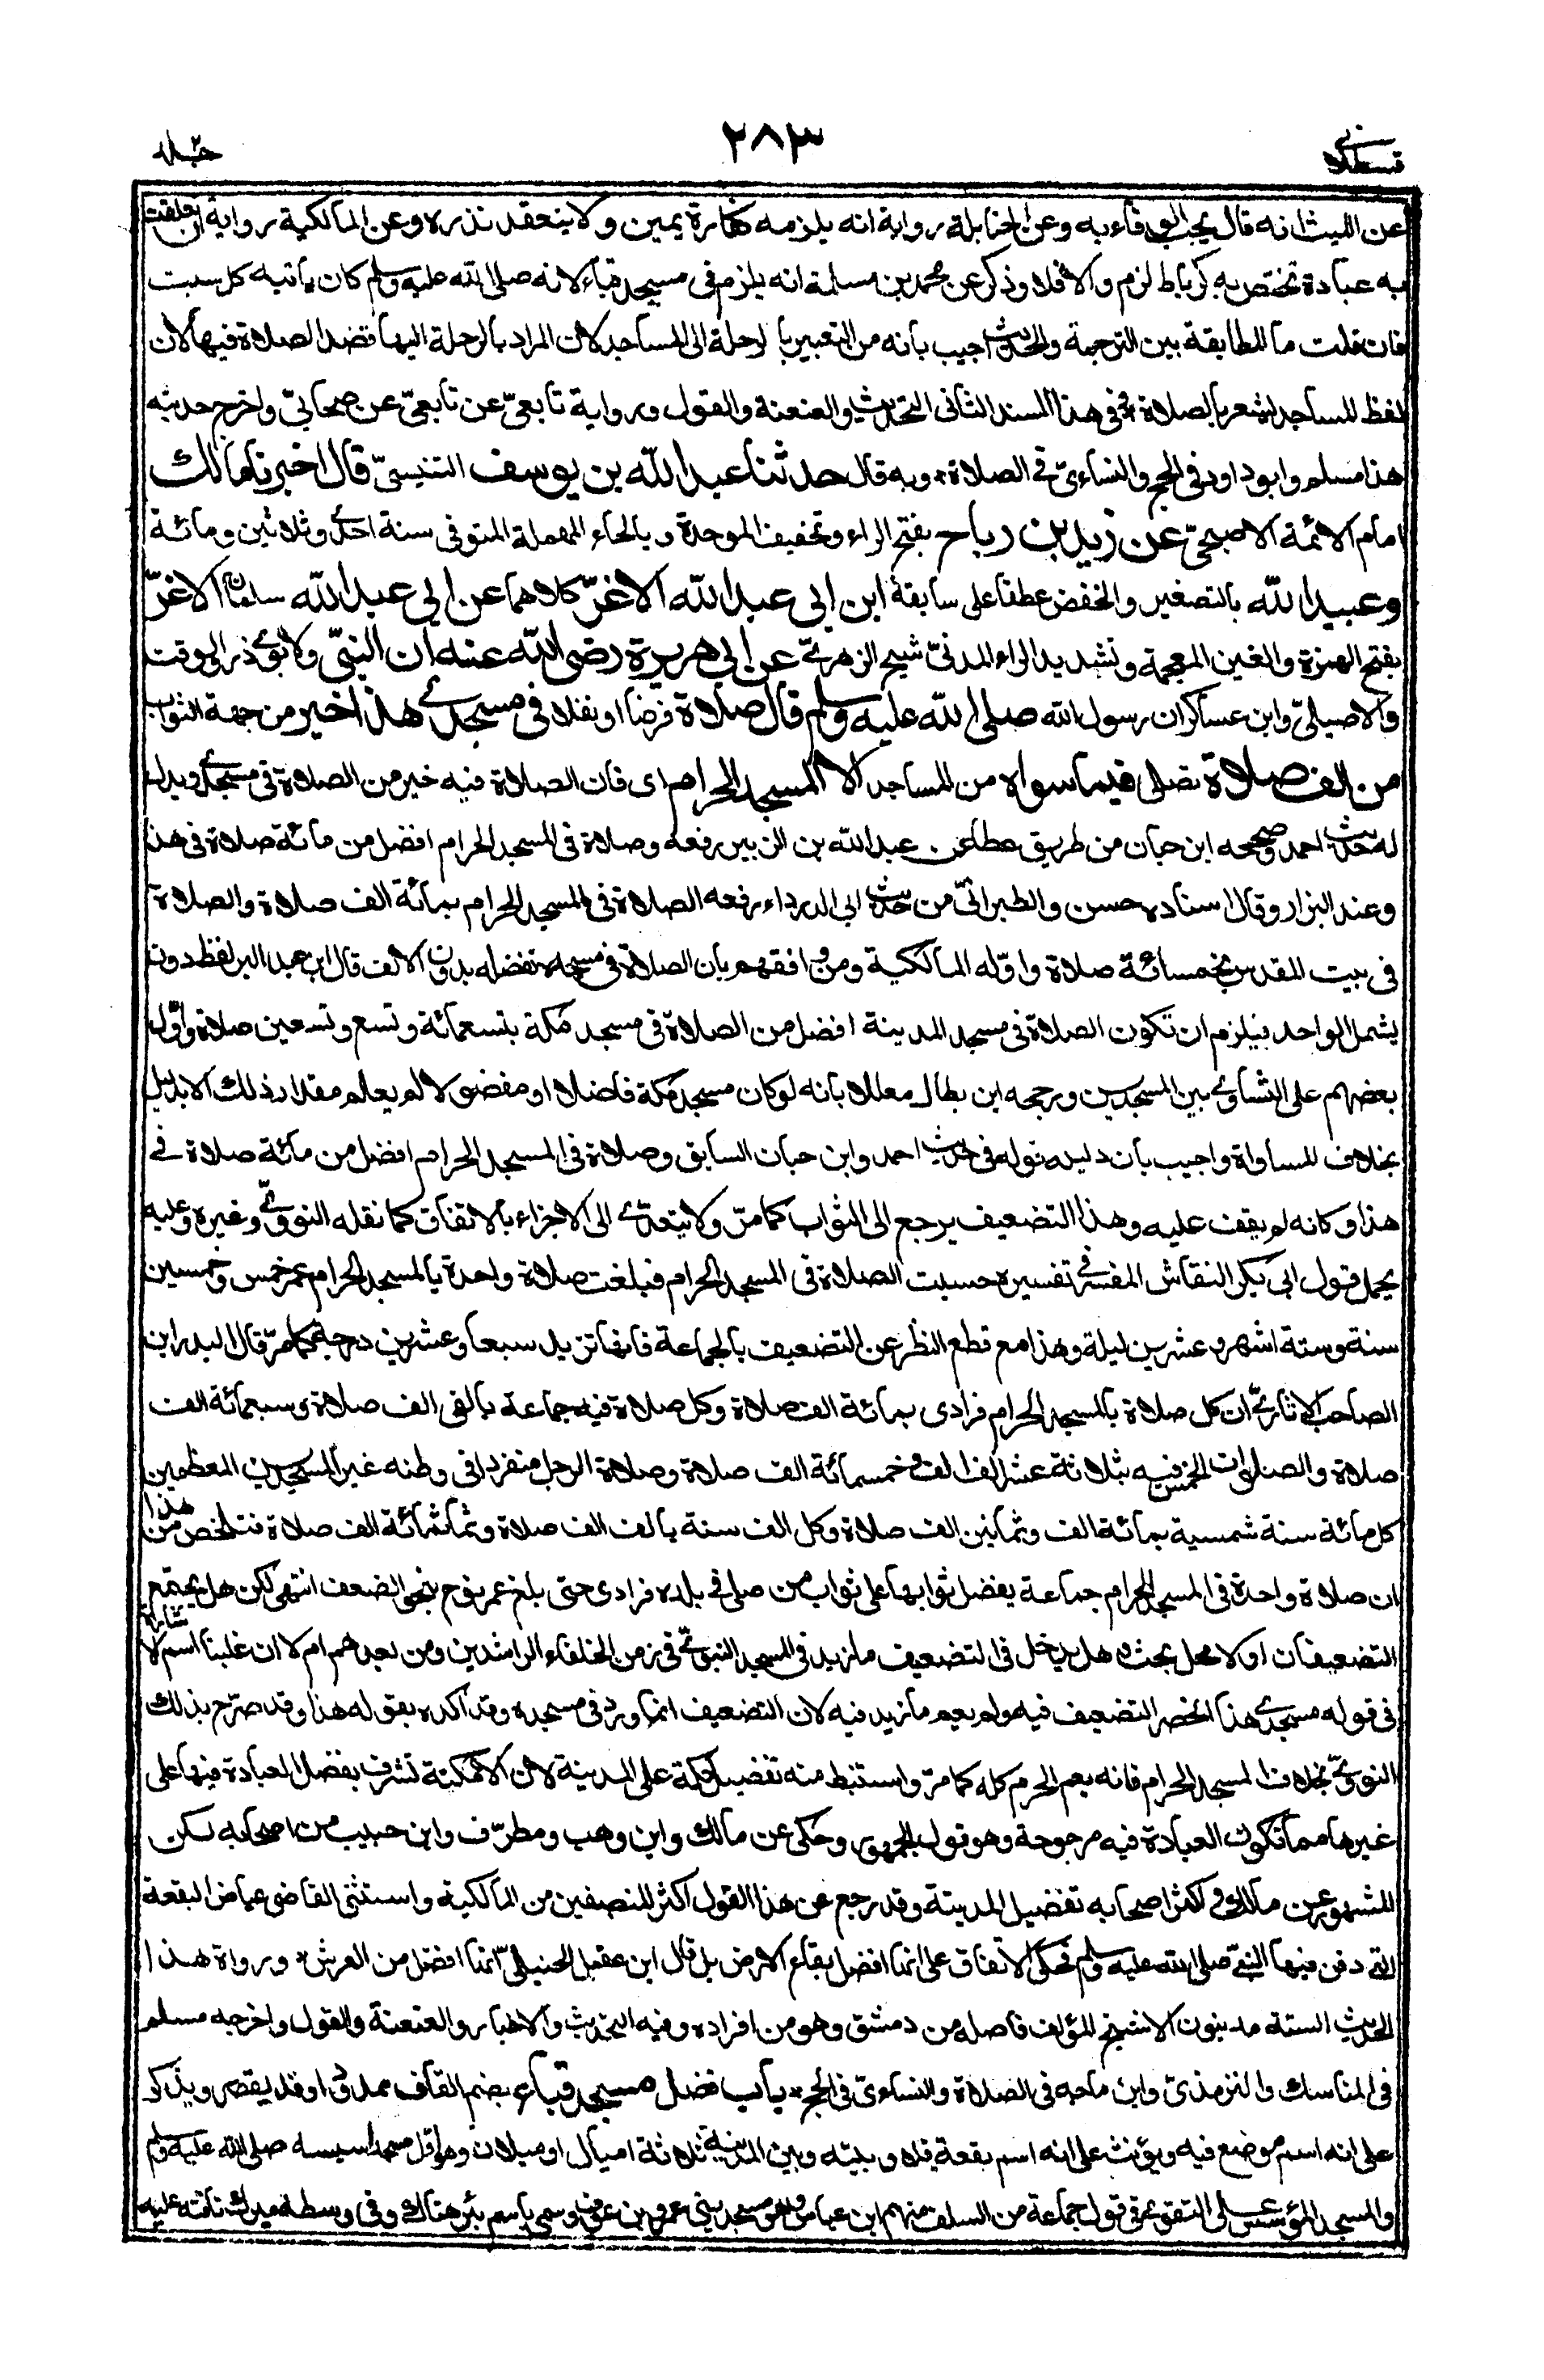 قسطلانی
٢٨٣
جلد
عن الليث انه قال يجب الوفاء به وعن الحنابلة رواية انه يلزمه كفارة يمين ولا ينعقد نذره وعن المالكية رواية ان تعلقت
به عبادة تختص به كرباط لزم والا فلا وذكر عن محمد بن مسلمة انه يلزم فى مسجد قباء لانه صلى الله عليه وسلم كان ياتيه كل سبت
فان قلت ما المطابقة بين الترجمة والحديث اجيب بانه من التعبير بالرحلة الى المساجد لان المراد بالرحلة اليها قصد الصلاة فيها لان
لفظ المساجد يشعر بالصلاة وفى هذا السند الثانى التحديث والعنعنة والقول ورواية تابعىّ عن تابعىّ عن صحابىّ واخرج حديثه
هذا مسلم وابو داود فى الحج والنساءىّ فى الصلاة * وبه قال حدثنا عبد الله بن يوسف التنيسىّ قال اخبرنا مالك
امام الائمة الاصبحىّ عن زيد بن رباح بفتح الراء وتخفيف الموحدة وبالحاء المهملة المتوفى سنة احدى وثلاثين ومائة
وعبيد الله بالتصغير والخفض عطفا على سابقه ابن ابى عبد الله الاغرّ كلاهما عن ابى عبد الله سلمان الاغرّ
بفتح الهمزة والغين المعجمة وتشديد الراء المدنىّ شيخ الزهرىّ عن ابى هريرة رضى الله عنه ان النبىّ ولابوى ذر والوقت
والاصيلىّ وابن عساكر ان رسول الله صلى الله عليه وسلم قال صلاة فرضا او نفلا فى مسجدى هذا خير من جهة الثواب
من الف صلاة تصلى فيما سواه من المساجد الا المسجد الحرام اى فان الصلاة فيه خير من الصلاة فى مسجدى ويدل
له حديث احمد وصححه ابن حبان من طريق عطاء عن عبد الله بن الزبير رفعه وصلاة فى المسجد الحرام افضل من مائة صلاة فى هذا
وعند البزار وقال اسناده حسن والطبرانىّ من حديث ابى الدرداء رفعه الصلاة فى المسجد الحرام بمائة الف صلاة والصلاة
فى بيت المقدس بخمسائة صلاة واوّله المالكية ومن وافقهم بان الصلاة فى مسجده تفضله بدون الالف قال ابن عبد البر لفظ دون
يشمل الواحد فيلزم ان تكون الصلاة فى مسجد المدينة افضل من الصلاة فى مسجد مكة بتسعمائة وتسع وتسعين صلاة واوّل
بعضهم على التساوى بين المسجدين ورجحه ابن بطال معللا بانه لو كان مسجد مكة فاضلا او مفضولا لم يعلم مقدار ذلك الا بدليل
بخلاف المساواة واجيب بان دليله قوله فى حديث احمد وابن حبان السابق وصلاة فى المسجد الحرام افضل من مائة صلاة فى
هذا وكانه لم يقف عليه وهذا التضعيف يرجع الى الثواب كما مرّ ولا يتعدّى الى الاجزاء بالاتفاق كما نقله النووىّ وغيره وعليه
يحمل قول ابى بكر النقاش المفسر فى تفسيره حسبت الصلاة فى المسجد الحرام فبلغت صلاة واحدة بالمسجد الحرام عمر خمس وخمسين
سنة وستة اشهر وعشرين ليلة وهذا مع قطع النظر عن التضعيف بالجماعة فانها تزيد سبعا وعشرين درجة كما مرّ قال البدر ابن
الصاحب الاثارىّ ان كل صلاة بالمسجد الحرام فرادى بمائة الف صلاة وكل صلاة فيه جماعة بالفى الف صلاة وسبعمائة الف
صلاة والصلوات الخمس فيه بثلاثة عشر الف الف وخمسمائة الف صلاة وصلاة الرجل منفردا فى وطنه غير المسجدين المعظمين
كل مائة سنة شمسية بمائة الف وثمانين الف صلاة وكل الف سنة بالف الف صلاة وثمانمائة الف صلاة فتلخص من هذا
ان صلاة واحدة فى المسجد الحرام جماعة يفضل ثوابها على ثواب من صلى فى بلده فرادى حتى بلغ عمر نوح بنحو الضعف انتهى لكن هل يجتمع
التضعيفان اولا محل بحث وهل يدخل فى التضعيف ما زيد فى المسجد النبوىّ فى زمن الخلفاء الراشدين ومن بعدهم ام لا ان غلبنا اسم الاشارة
فى قوله مسجدى هذا انحصر التضعيف فيه ولم يعم ما زيد فيه لان التضعيف انما ورد فى مسجده وقد اكده بقوله هذا وقد صرّح بذلك
النووىّ بخلاف المسجد الحرام فانه يعم الحرم كله كما مرّ واستنبط منه تفضيل مكة على المدينة لان الامكنة تشرف بفضل العبادة فيها على
غيرها مما تكون العبادة فيه مرجوحة وهو قول الجمهور وحكى عن مالك وابن وهب ومطرّف وابن حبيب من اصحابه لكن
المشهور عن مالك واكثر اصحابه تفضيل المدينة وقد رجع عن هذا القول اكثر المنصفين من المالكية واستثنى القاضى عياض البقعة
التى دفن فيها النبىّ صلى الله عليه وسلم فحكى الاتفاق على انها افضل بقاع الارض بل قال ابن عقيل الحنبلىّ انها افضل من العرش * ورواة هذا
الحديث الستة مدنيون الا شيخ المؤلف فاصله من دمشق وهو من افراده وفيه التحديث والاخبار والعنعنة والقول واخرجه مسلم
فى المناسك والترمذىّ وابن ماجه فى الصلاة والنساءىّ فى الحج * باب فضل مسجد قباء بضم القاف ممدودا وقد يقصر ويذكر
على انه اسم موضع فيه ويؤنث على انه اسم بقعة فيه وبينه وبين المدينة ثلاثة اميال او ميلان وهو اوّل مسجد اسسه صلى الله عليه وسلم
والمسجد المؤسس على التقوى فى قول جماعة من السلف منهم ابن عباس وهو مسجد بنى عمرو بن عوف وسمى باسم بئر هناك وفى وسطه مبرك ناقته عليه